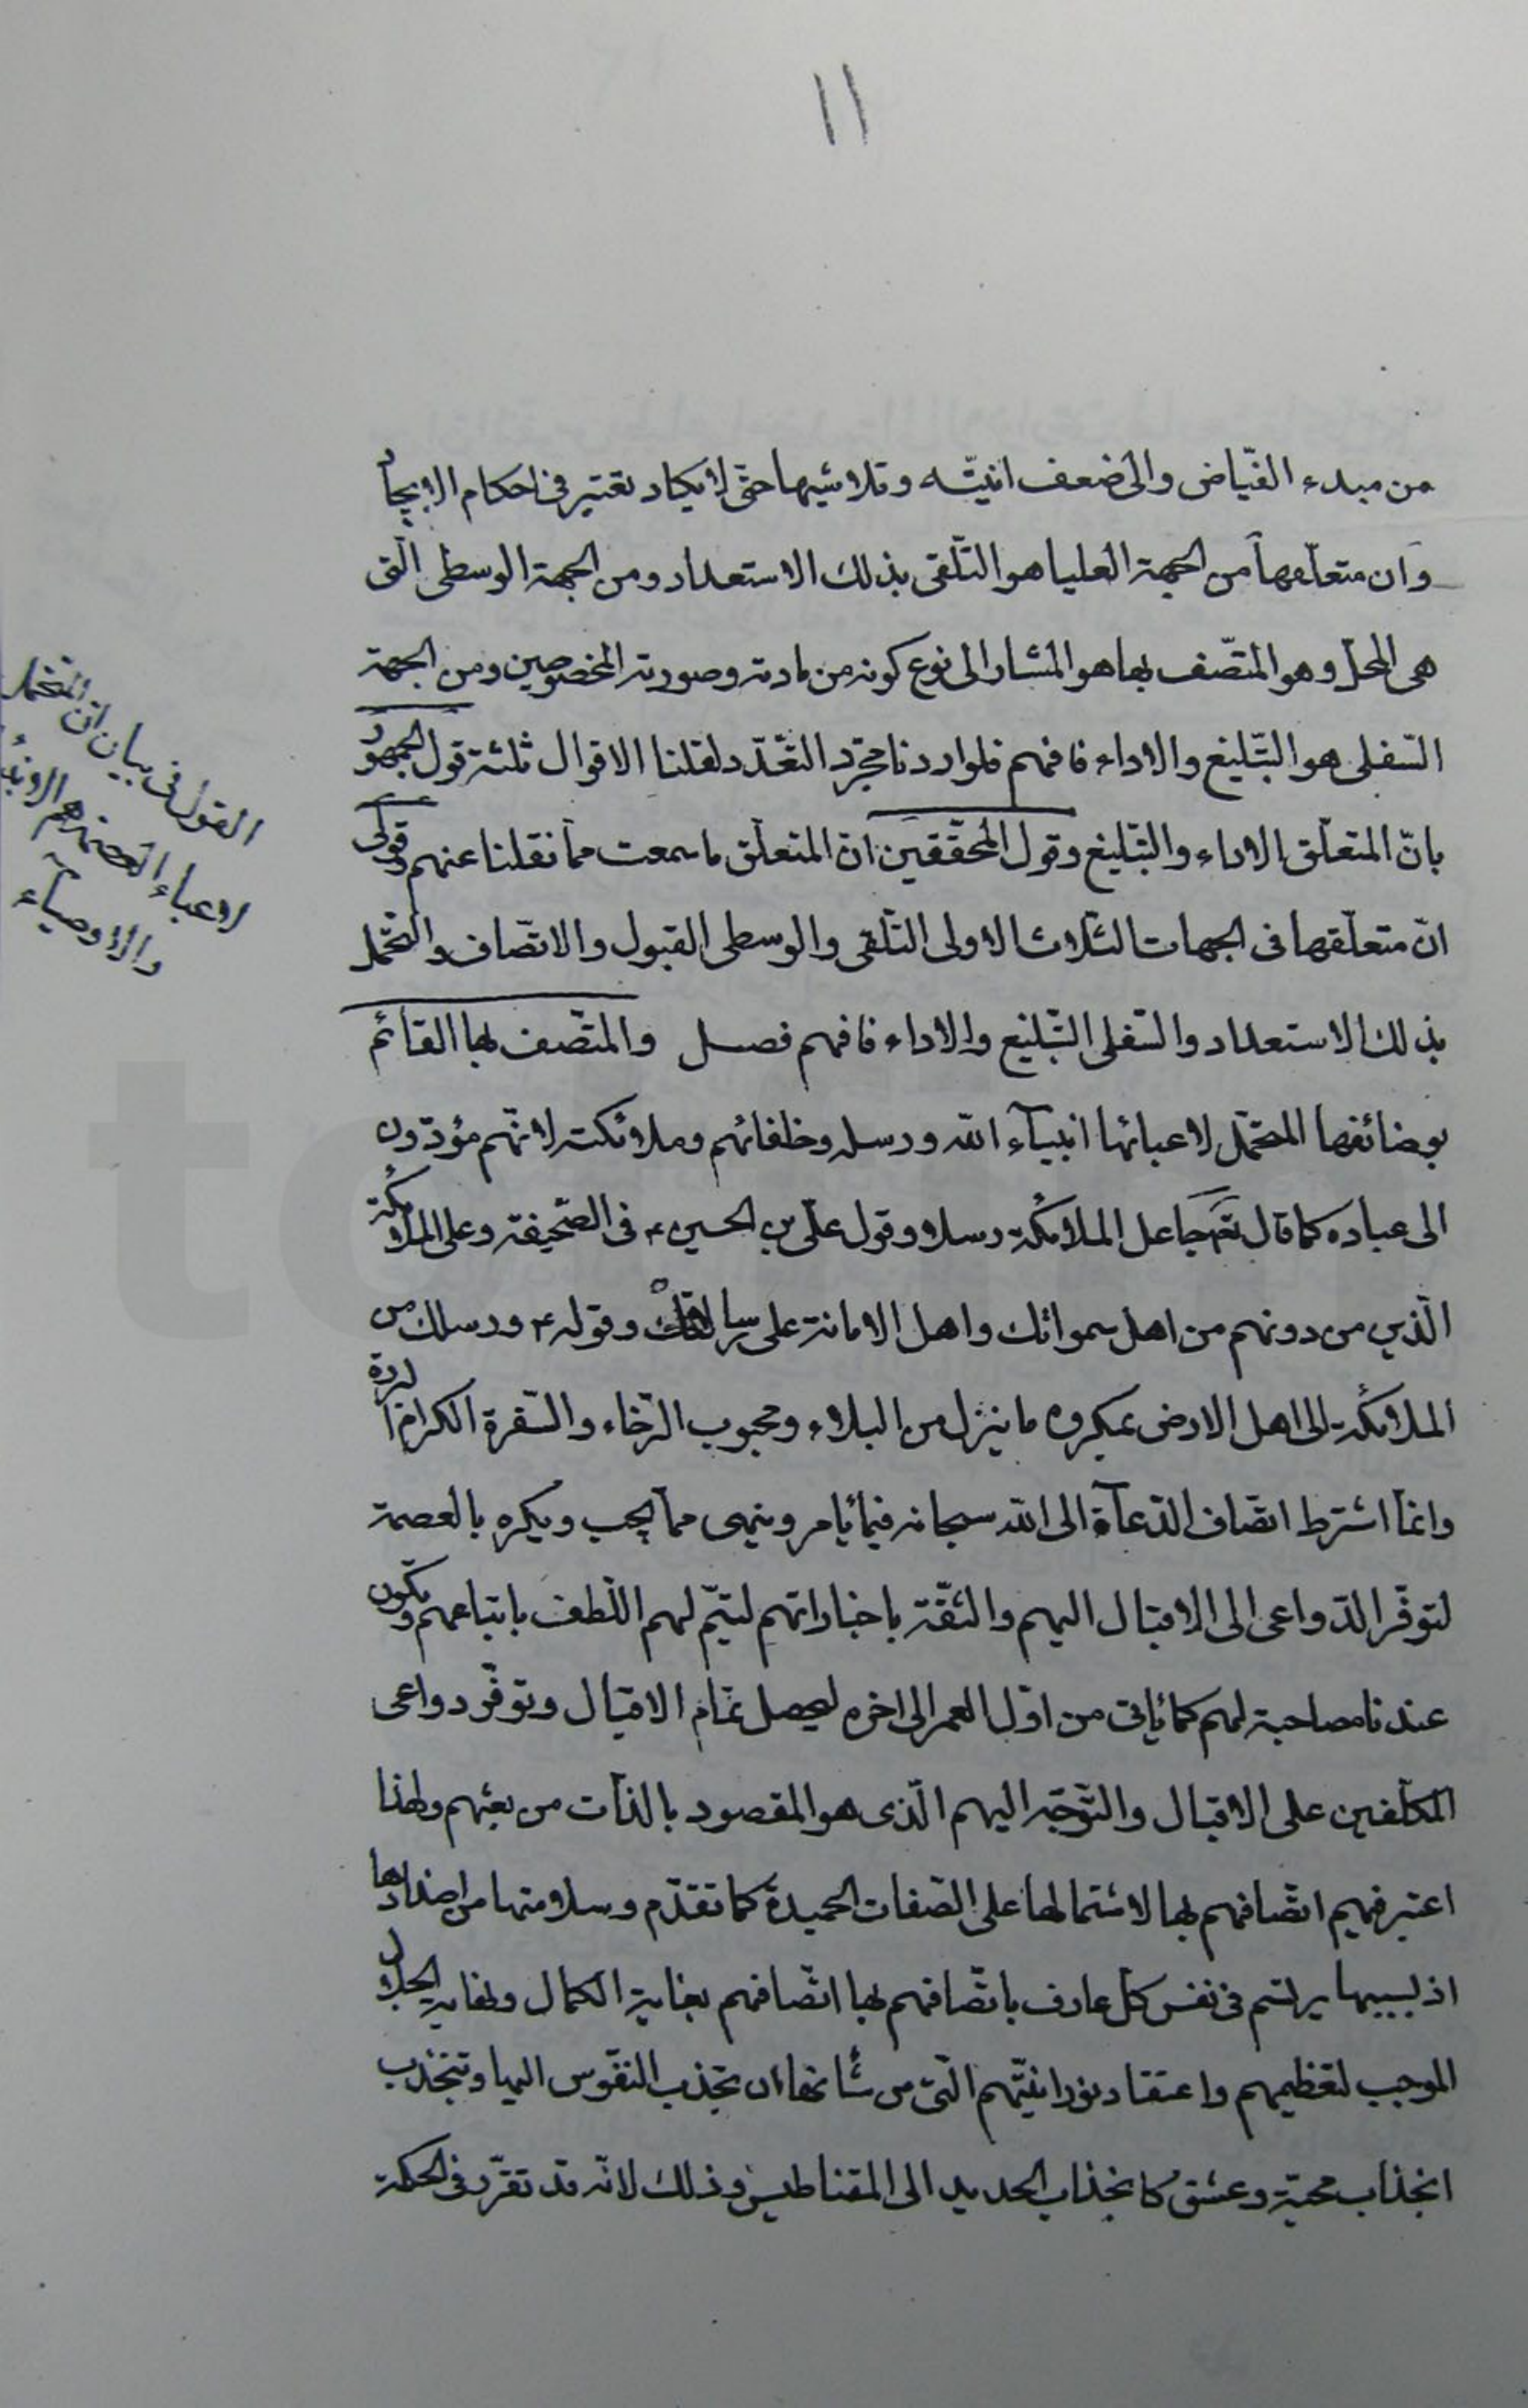 ١١
من مبدء الفيّاض والى ضعف انيّته وتلاشيها حتّى لا يكاد تعتبر فى احكام الايجاد
وان متعلّقها من الجهة العليا هو التلّقى بذلك الاستعداد ومن الجهة الوسطى الّتى
هى المحلّ وهو المتّصف بها هو المشار الى نوع كونه من مادته وصورته المخصوصين ومن الجهة
السّفلى هو التّبليغ والاداء فافهم فلو اردنا مجّرد التّعدّد لقلنا الاقوال ثلثة قول الجمهور
بانّ المتعلّق الاداء والتّبليغ وقول المحقّقين انّ المتعلّق ما سمعت ممّا نقلنا عنهم وقولى
انّ متعلّقها فى الجهات الثّلاث الاولى التّلقى والوسطى القبول والاتّصاف والتّحمّل
بذلك الاستعداد والسّفلى التّبليغ والاداء فافهم فصل والمتّصف بها القائم
بوضائفها المتحمّل لاعبائها انبيآء اللّه ورسله وخلفائهم وملائكته لانّهم مؤدّون
الى عباده كما قال تعَ جاعل الملائكة رسلا وقول علّى بن الحسين ع فى الصّحيفة وعلى الملائكة
الّذين من دونهم من اهل سمواتك واهل الامانة على رسالاتك وقوله ع ورسلك من
الملائكة الى اهل الارض بمكروه ما ينزل من البلاء ومحبوب الرّخاء والسّفرة الكرام البررة
وانمّا اشترط اتصّاف الدّعآة الى اللّه سبحانه فيما يأمر وينهى ممّا يحب ويكره بالعصمة
لتوفّر الدّواعى الى الاقبال اليهم والثّقة باخباراتهم ليتمّ لهم اللّطف باتباعهم وتكون
عندنا مصاحبة لهم كما يأتى من اوّل العمر الى اخره ليحصل تمام الاقبال وتوفّر دواعى
المكلّفين على الاقبال والتّوجّه اليهم الّذى هو المقصود بالذّات من بعثهم ولهذا
اعتبر فيهم اتّصافهم بها لاشتمالها على الصّفات الحميدة كما تقدّم وسلامتها من اضدادها
اذ لسببها يرتسم فى نفس كلّ عارف باتّصافهم بها اتّصافهم بغاية الكمال ولغاية الجلال
الموجب لتعظيمهم واعتقاد نورانيّتهم الّتى من شأنها ان تجذب النّفوس اليها وتنجذب
انجذاب محبّة وعشق كانجذاب الحديد الى المقناطيس وذلك لانّه قد تقرّر فى الحكمة
القول فى بيان انّ المتحمل
لاعباء العصمة هم الانبيآء
والاوصيآء